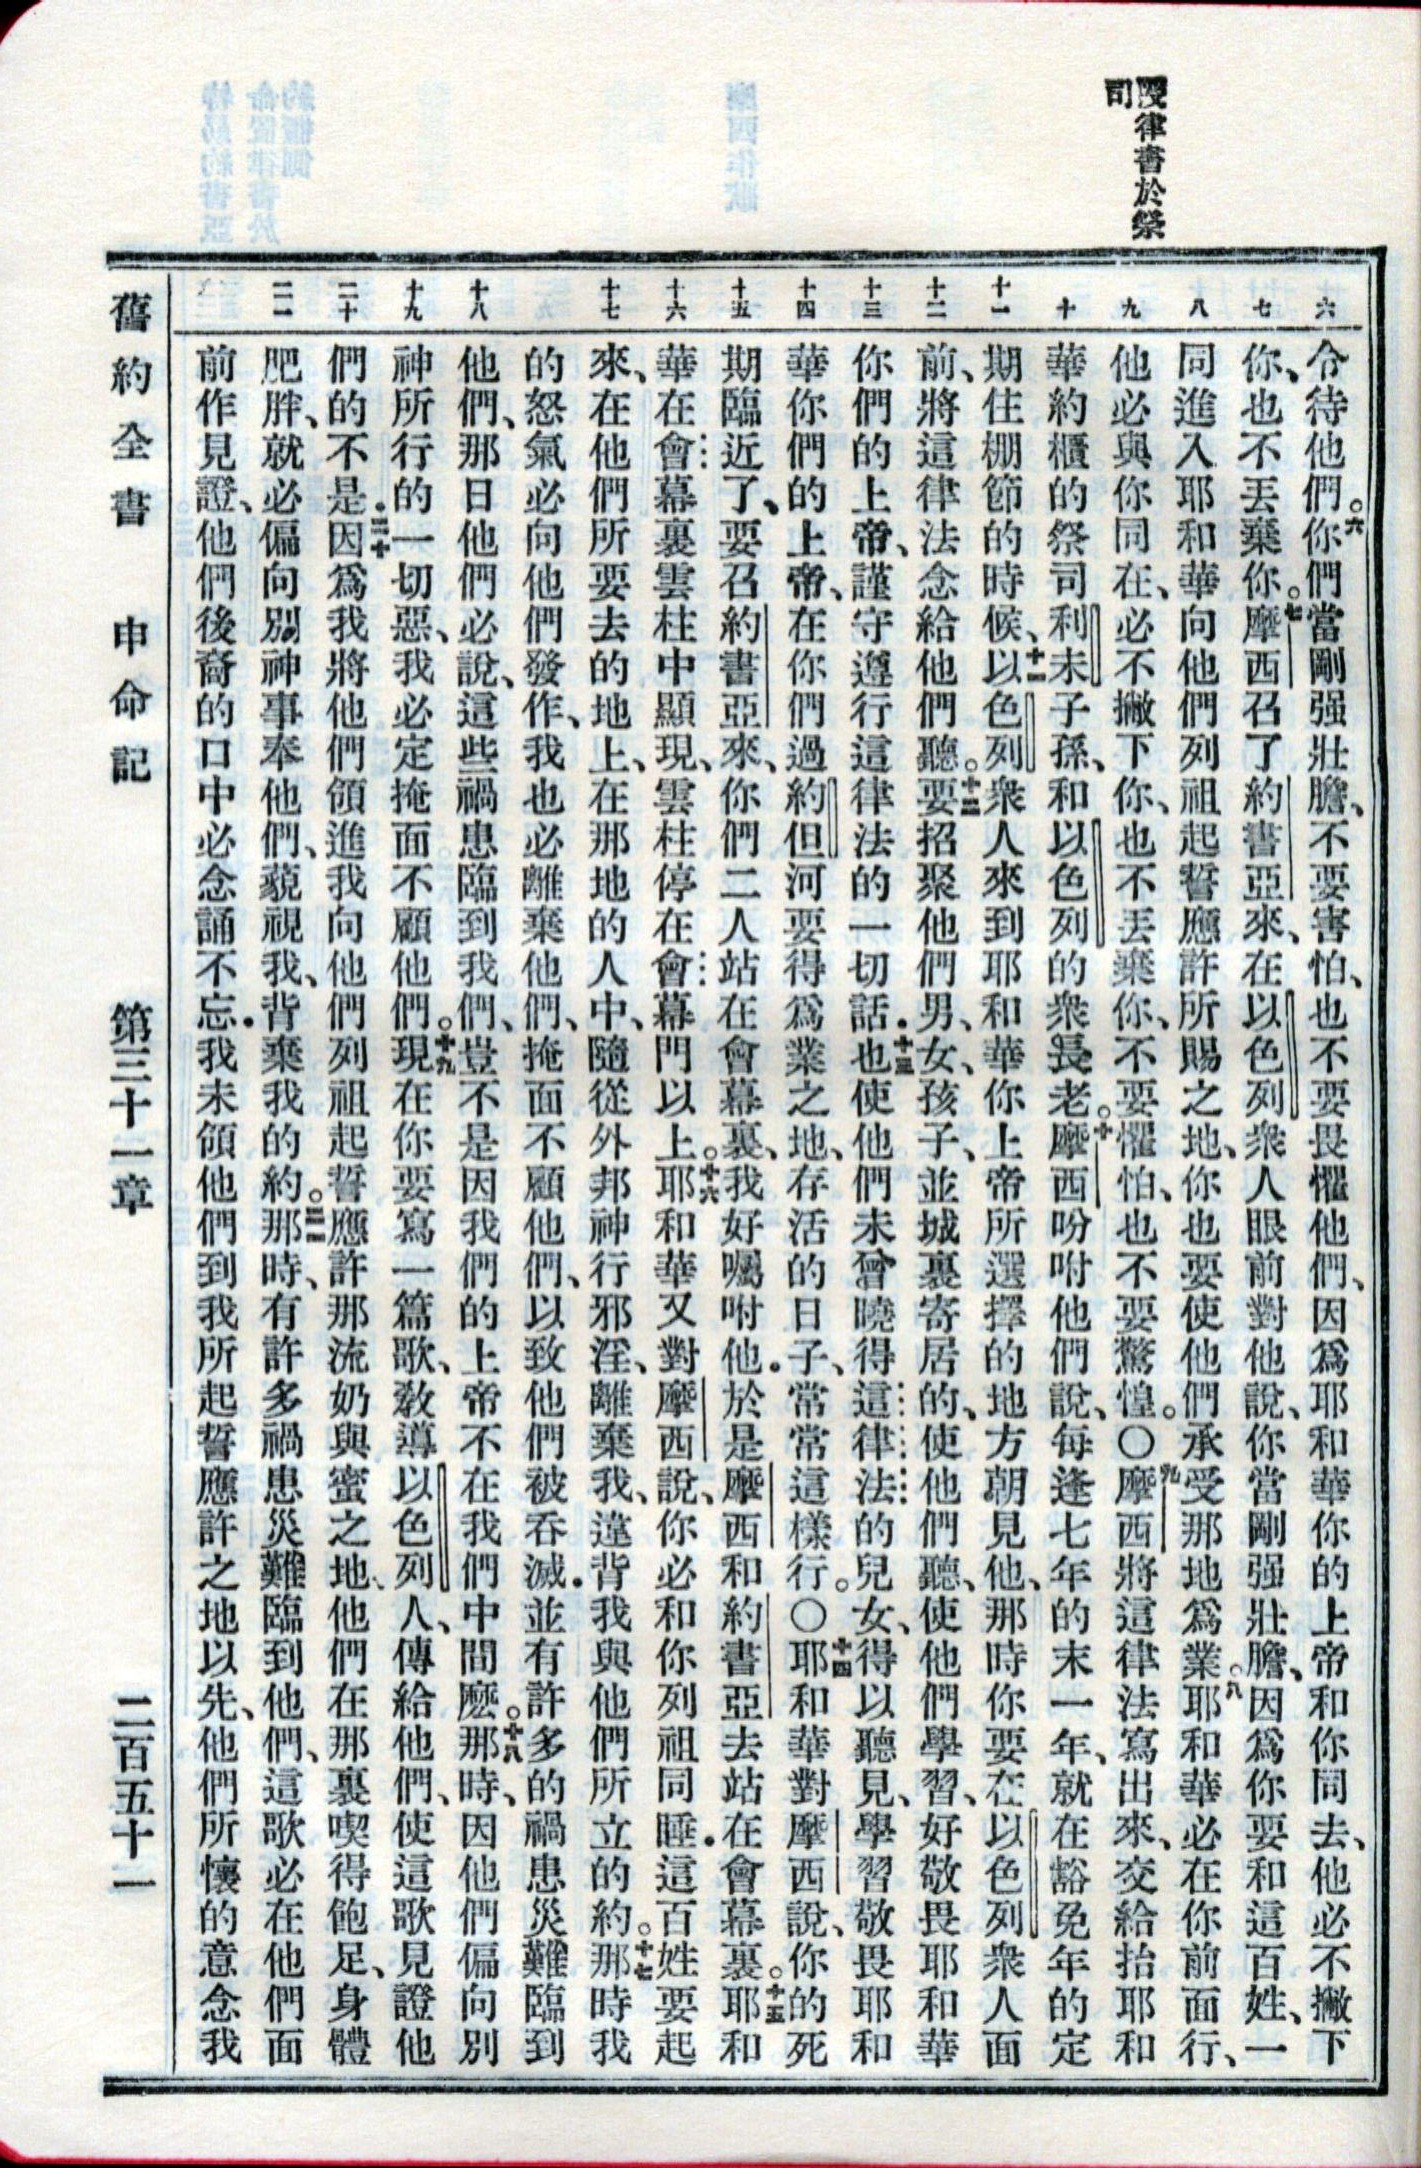 授律書於祭
司
六
七
八
九
十
十一
十二
十三
十四
十五
十六
十七
十八
十九
二十
二一
令待他們。六你們當剛强壯膽、不要害怕、也不要畏懼他們、因爲耶和華你的上帝和你同去、他必不撇下
你、也不丟棄你。七摩西召了約書亞來、在以色列衆人眼前對他說、你當剛强壯膽、因爲你要和這百姓、一
同進入耶和華向他們列祖起誓應許所賜之地、你也要使他們承受那地爲業。八耶和華必在你前面行、
他必與你同在、必不撇下你、也不丟棄你、不要懼怕、也不要驚惶。〇九摩西將這律法寫出來、交給抬耶和
華約櫃的祭司利未子孫、和以色列的衆長老。十摩西吩咐他們說、每逢七年的末一年、就在豁免年的定
期住棚節的時候、十一以色列衆人來到耶和華你上帝所選擇的地方朝見他、那時你要在以色列衆人面
前、將這律法念給他們聽。十二要招聚他們男、女、孩子、並城裏寄居的、使他們聽、使他們學習、好敬畏耶和華
你們的上帝、謹守遵行這律法的一切話．十三也使他們未曾曉得這律法的兒女、得以聽見、學習敬畏耶和
華你們的上帝、在你們過約但河要得爲業之地、存活的日子、常常這樣行。〇十四耶和華對摩西說、你的死
期臨近了、要召約書亞來、你們二人站在會幕裏、我好囑咐他．於是摩西和約書亞去站在會幕裏。十五耶和
華在會幕裏雲柱中顯現、雲柱停在會幕門以上。十六耶和華又對摩西說、你必和你列祖同睡．這百姓要起
來、在他們所要去的地上、在那地的人中、隨從外邦神行邪淫、離棄我、違背我與他們所立的約。十七那時我
的怒氣必向他們發作、我也必離棄他們、掩面不顧他們、以致他們被吞滅．並有許多的禍患災難臨到
他們、那日他們必說、這些禍患臨到我們、豈不是因我們的上帝不在我們中間麽。十八那時、因他們偏向別
神所行的一切惡、我必定掩面不顧他們。十九現在你要寫一篇歌、敎導以色列人、傳給他們、使這歌見證他
們的不是．二十因爲我將他們領進我向他們列祖起誓應許那流奶與蜜之地、他們在那裏喫得飽足、身體
肥胖、就必偏向別神事奉他們、藐視我、背棄我的約。二一那時、有許多禍患災難臨到他們、這歌必在他們面
前作見證、他們後裔的口中必念誦不忘．我未領他們到我所起誓應許之地以先、他們所懷的意念我
舊約全書　申命記　第三十一章　二百五十一